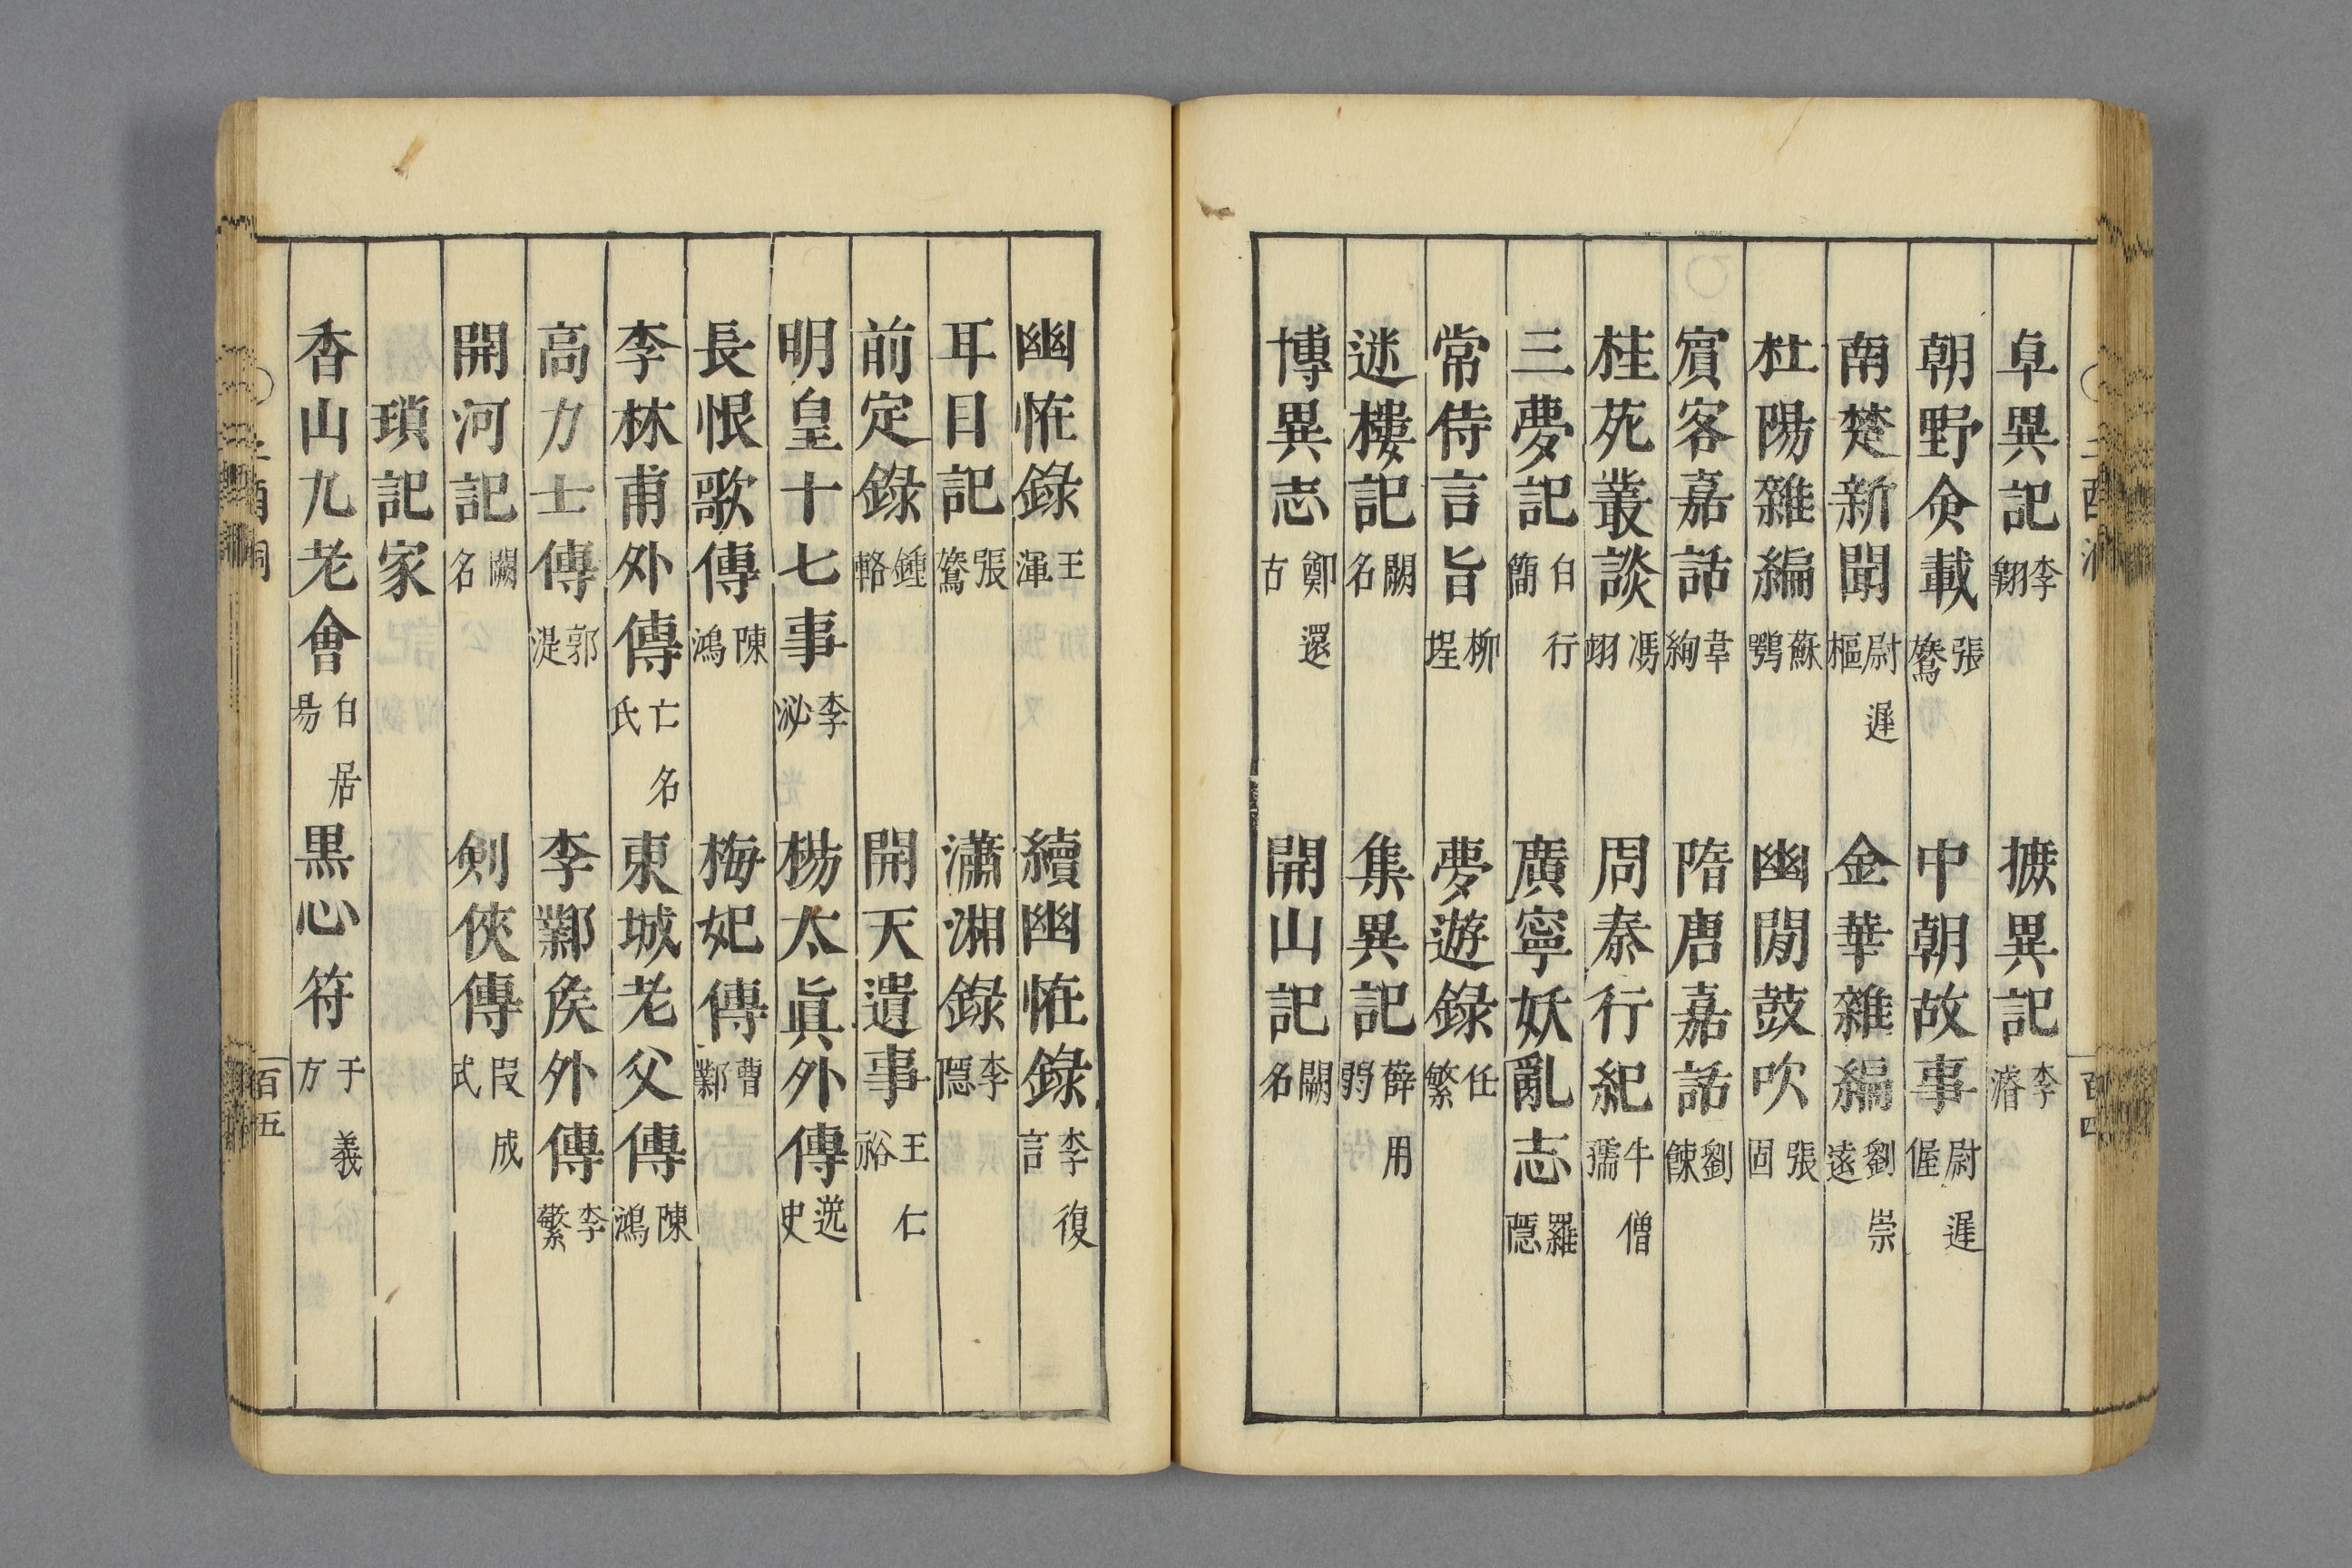 卓異記 李翺 摭異記 李濬
朝野僉載 張鷟 中朝故事 尉遲偓
南楚新聞 尉遲樞 金華雜編 劉崇遠
杜陽雜編 蘇鶚 幽閒鼓吹 張固
賔客嘉話 韋絢 隋唐嘉話 劉餗
桂苑叢談 馮翊 周秦行紀 牛僧孺
三夢記 白行簡 廣寧妖亂志 羅隱
常侍言旨 柳珵 夢遊錄 任繁
迷樓記 闕名 集異記 薛用弱
博異志 鄭還古 開山記 闕名
幽怪錄 王渾 續幽怪錄 李復言
耳目記 張鷟 瀟湘錄 李隱
前定錄 鍾輅 開天遺事 王仁裕
明皇十七事 李泌 楊太眞外傳 史
長恨歌傳 陳鴻 梅妃傳 曹鄴
李林甫外傳 亡名氏 東城老父傳 陳鴻
高力士傳 郭湜 李鄴矦外傳 李繁
開河記 闕名 劍俠傳 段成式
瑣記家
香山九老會 白居易 黒心符 于義方
百五